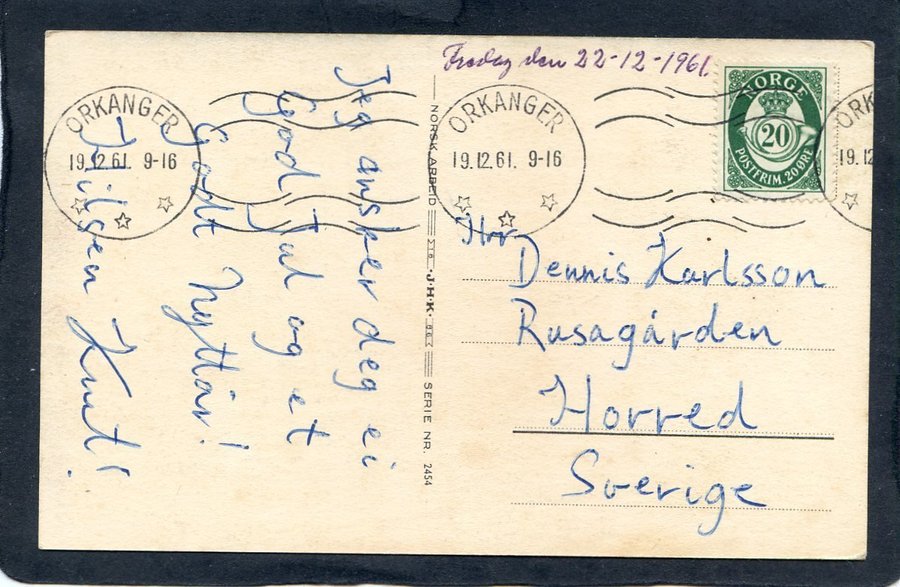 Fredag den 22-12-1961.
ORKANGER
19.12.61. 9-16
ORKANGER
19.12.61. 9-16
ORK
19.12
NORGE
20
POSTFRIM. 20 ØRE
Jeg ønsker deg ei
God Jul og et
Godt Nyttår!
Hilsen Knut!
NORSK ARBEID
J.H.K.
SERIE NR. 2454
Hrr
Dennis Karlsson
Rusagården
Horred
Sverige